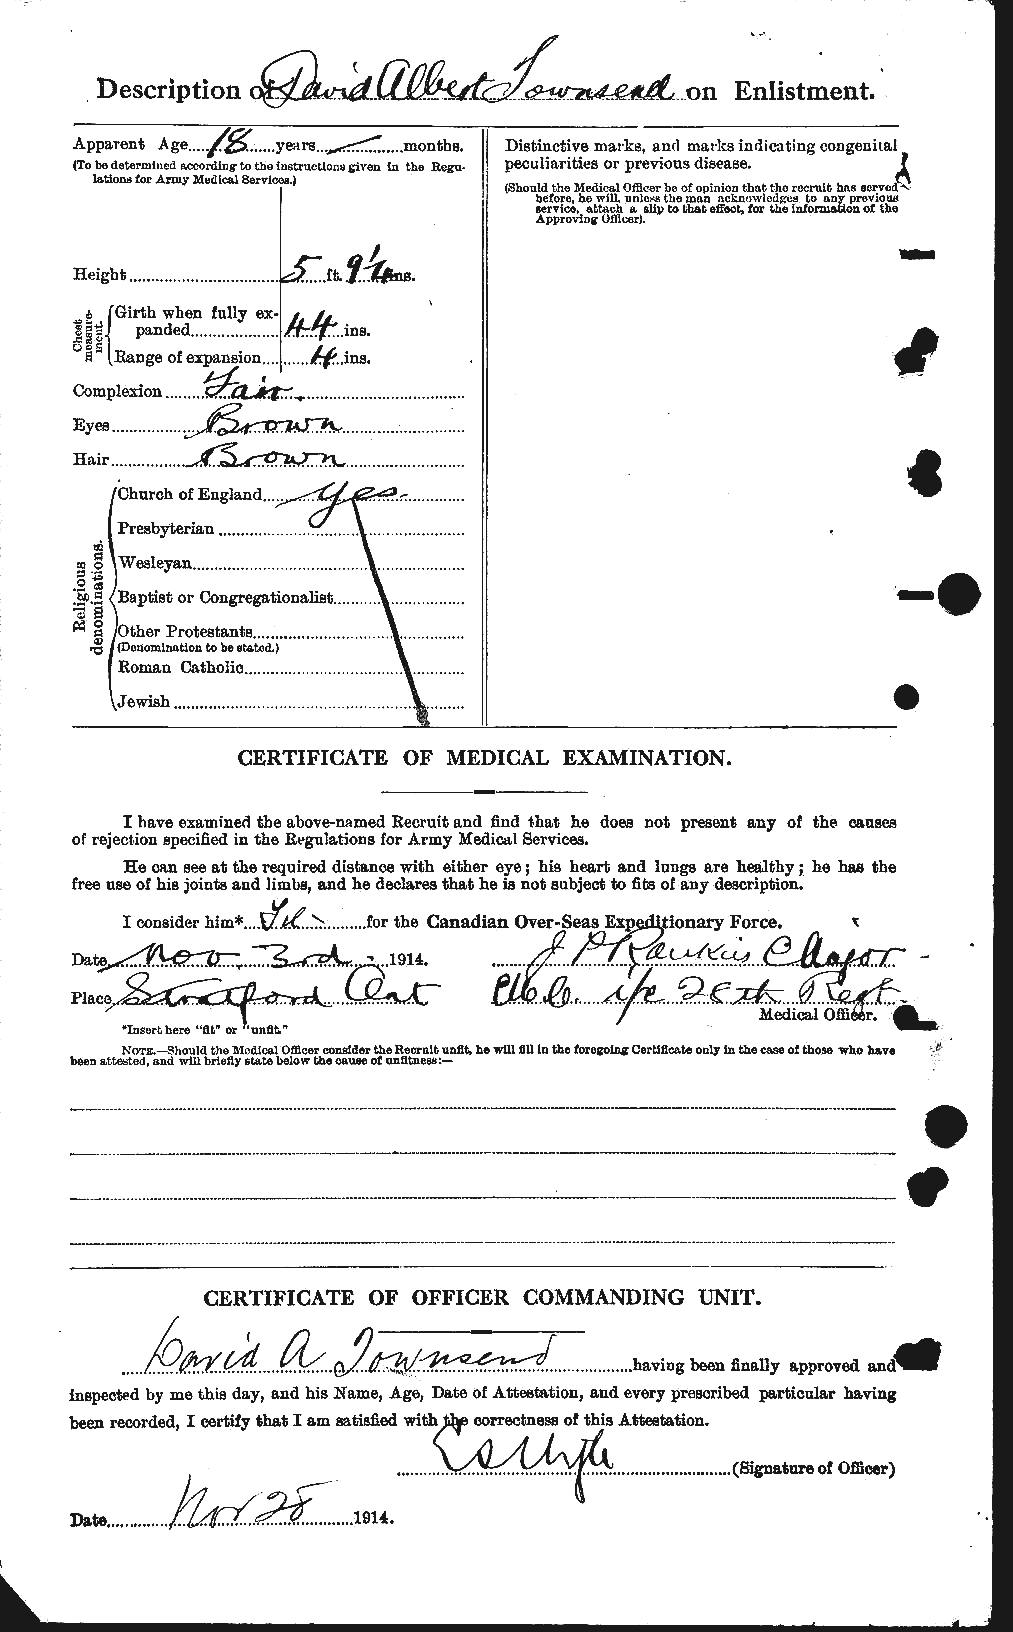 Description of David Albert Townsend on Enlistment.
Apparent Age 18 years months.
(To be determined according to the instructions given in the Regu-
lations for Army Medical Services.)
Height 5 ft. 9 1/4 ins.
Chest measure-ment.
Girth when fully ex-
panded 44 ins.
Range of expansion 4 ins.
Complexion Fair.
Eyes Brown
Hair Brown
Religious denominations.
Church of England Yes
Presbyterian
Wesleyan
Baptist or Congregationalist
Other Protestants
(Denomination to be stated.)
Roman Catholic
Jewish
Distinctive marks, and marks indicating congenital
peculiarities or previous disease.
(Should the Medical Officer be of opinion that the recruit has served
before, he will, unless the man acknowledges to any previous
service, attach a slip to that effect, for the information of the
Approving Officer).
CERTIFICATE OF MEDICAL EXAMINATION.
I have examined the above-named Recruit and find that he does not present any of the causes
of rejection specified in the Regulations for Army Medical Services.
He can see at the required distance with either eye; his heart and lungs are healthy; he has the
free use of his joints and limbs, and he declares that he is not subject to fits of any description.
I consider him* Fit for the Canadian Over-Seas Expeditionary Force.
Date Nov 3rd 1914. J P Rankin Major
Place Stratford Ont i/c 28th Regt.
Medical Officer.
*Insert here "fit" or "unfit."
NOTE.—Should the Medical Officer consider the Recruit unfit, he will fill in the foregoing Certificate only in the case of those who have
been attested, and will briefly state below the cause of unfitness:—
CERTIFICATE OF OFFICER COMMANDING UNIT.
David A Townsend having been finally approved and
inspected by me this day, and his Name, Age, Date of Attestation, and every prescribed particular having
been recorded, I certify that I am satisfied with the correctness of this Attestation.
(Signature of Officer)
Date Nov 28 1914.